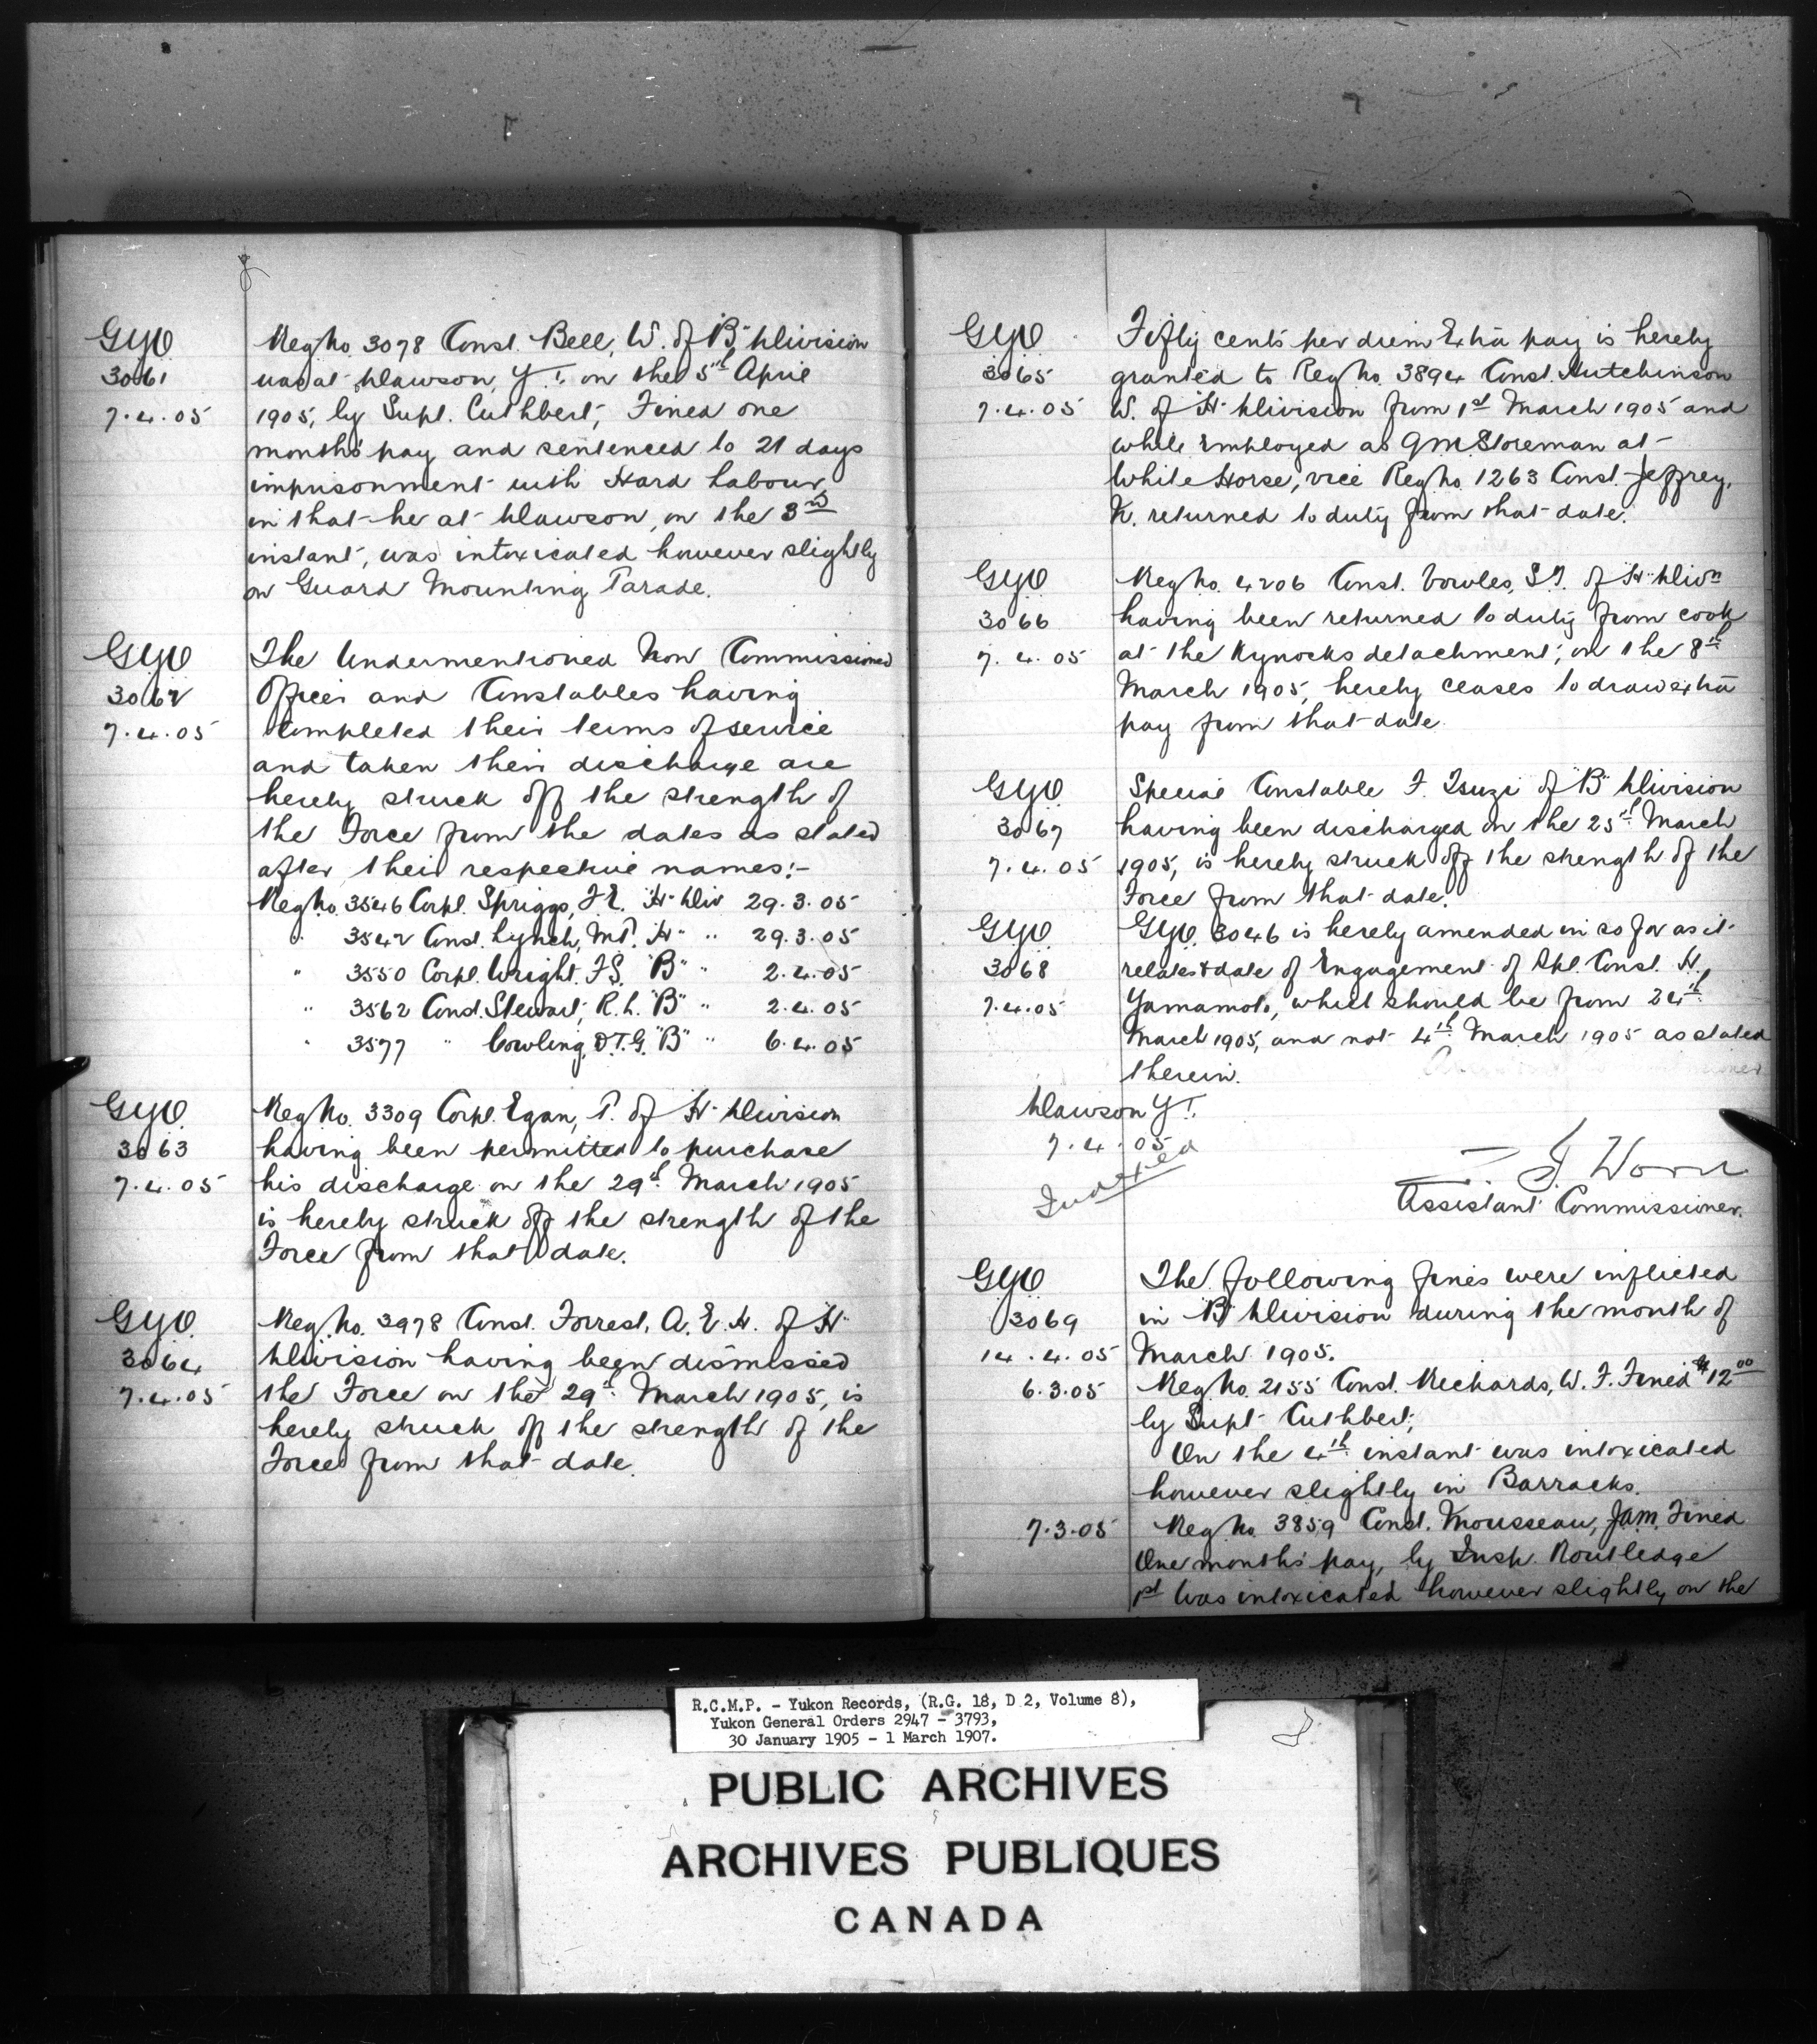 G.Y.O.
3061
7.4.05
Reg No. 3078 Const. Bell, W. of "B" Division
was at Dawson, Y.T. on the 5th April
1905, by Supt. Cuthbert, Fined one
month's pay and sentenced to 21 days
imprisonment with Hard Labour,
in that he at Dawson, on the 3rd
instant, was intoxicated however slightly
on Guard Mounting Parade.
G.Y.O.
3062
7.4.05
The Undermentioned Non Commissioned
Officer and Constables having
completed their terms of service
and taken their discharge are
hereby struck off the strength of
the Force from the dates as stated
after their respective names:-
Reg No. 3546 Corpl. Spriggs, F.E. "H" Div 29.3.05
" 3542 Const. Lynch, M.P. "H" " 29.3.05
" 3550 Corpl. Wright, F.S. "B" " 2.4.05
" 3562 Const. Stewart, R.L. "B" " 2.4.05
" 3577 " Cowling, D.T.G. "B" " 6.4.05
G.Y.O.
3063
7.4.05
Reg No. 3309 Corpl. Egan, P. of "H" Division
having been permitted to purchase
his discharge on the 29th March 1905
is hereby struck off the strength of the
Force from that date.
G.Y.O.
3064
7.4.05
Reg. No. 3978 Const. Forrest, A.E.H. of "H"
Division having been dismissed
the Force on the 29th March 1905, is
hereby struck off the strength of the
Force from that date.
G.Y.O.
3065
7.4.05
Fifty cents per diem Extra pay is hereby
granted to Reg No. 3894 Const. Hutchinson
W. of "H" Division from 1st March 1905 and
while Employed as QM. Storeman at
White Horse, vice Reg No. 1263 Const. Jeffrey,
K. returned to duty from that date.
G.Y.O.
3066
7.4.05
Reg No. 4206 Const. Vowles, S.J. of "H" Divn
having been returned to duty from cook
at the Kynocks detachment, on the 8th
March 1905, hereby ceases to draw extra
pay from that date.
G.Y.O.
3067
7.4.05
Special Constable F. Tsuzi of "B" Division
having been discharged on the 25th March
1905, is hereby struck off the strength of the
Force from that date.
G.Y.O.
3068
7.4.05
G.Y.O. 3046 is hereby amended in so far as it
relates to date of Engagement of Spl. Const. H.
Yamamoto, which should be from 24th
March 1905, and not 4th March 1905 as stated
therein.
Dawson Y.T.
7.4.05
Indexed
Z. T. Wood
Assistant Commissioner.
G.Y.O.
3069
14.4.05
The following fines were inflicted
in "B" Division during the month of
March 1905.
6.3.05
Reg. No. 2155 Const. Richards, W.F. Fined $12.00
by Supt. Cuthbert;
On the 4th instant was intoxicated
however slightly in Barracks.
7.3.05
Reg No. 3859 Const. Mousseau, J.A.M. Fined
One month's pay, by Insp. Routledge
1st Was intoxicated however slightly on the
R.C.M.P. - Yukon Records, (R.G. 18, D 2, Volume 8),
Yukon General Orders 2947 - 3793,
30 January 1905 - 1 March 1907.
PUBLIC ARCHIVES
ARCHIVES PUBLIQUES
CANADA